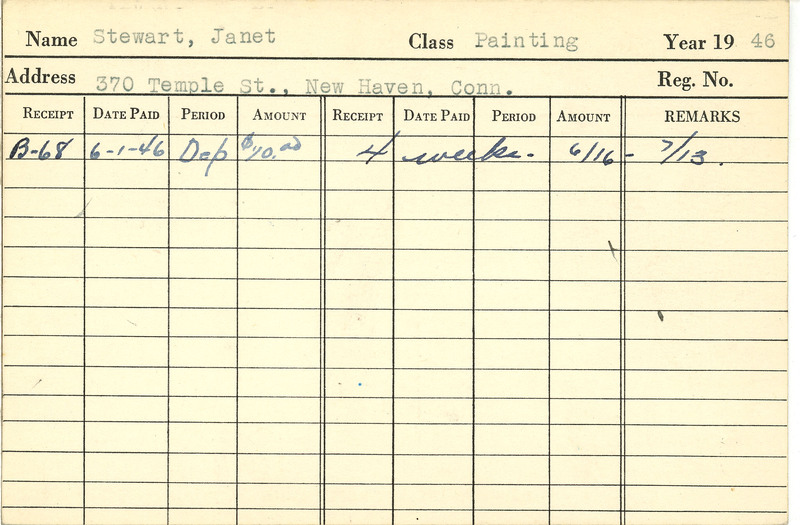 Name Stewart, Janet Class Painting Year 19 46
Address 370 Temple St., New Haven, Conn. Reg. No.
RECEIPT DATE PAID PERIOD AMOUNT RECEIPT DATE PAID PERIOD AMOUNT REMARKS
B-68 6-1-46 Dep $10.00 4 weeks- 6/16- 7/13.